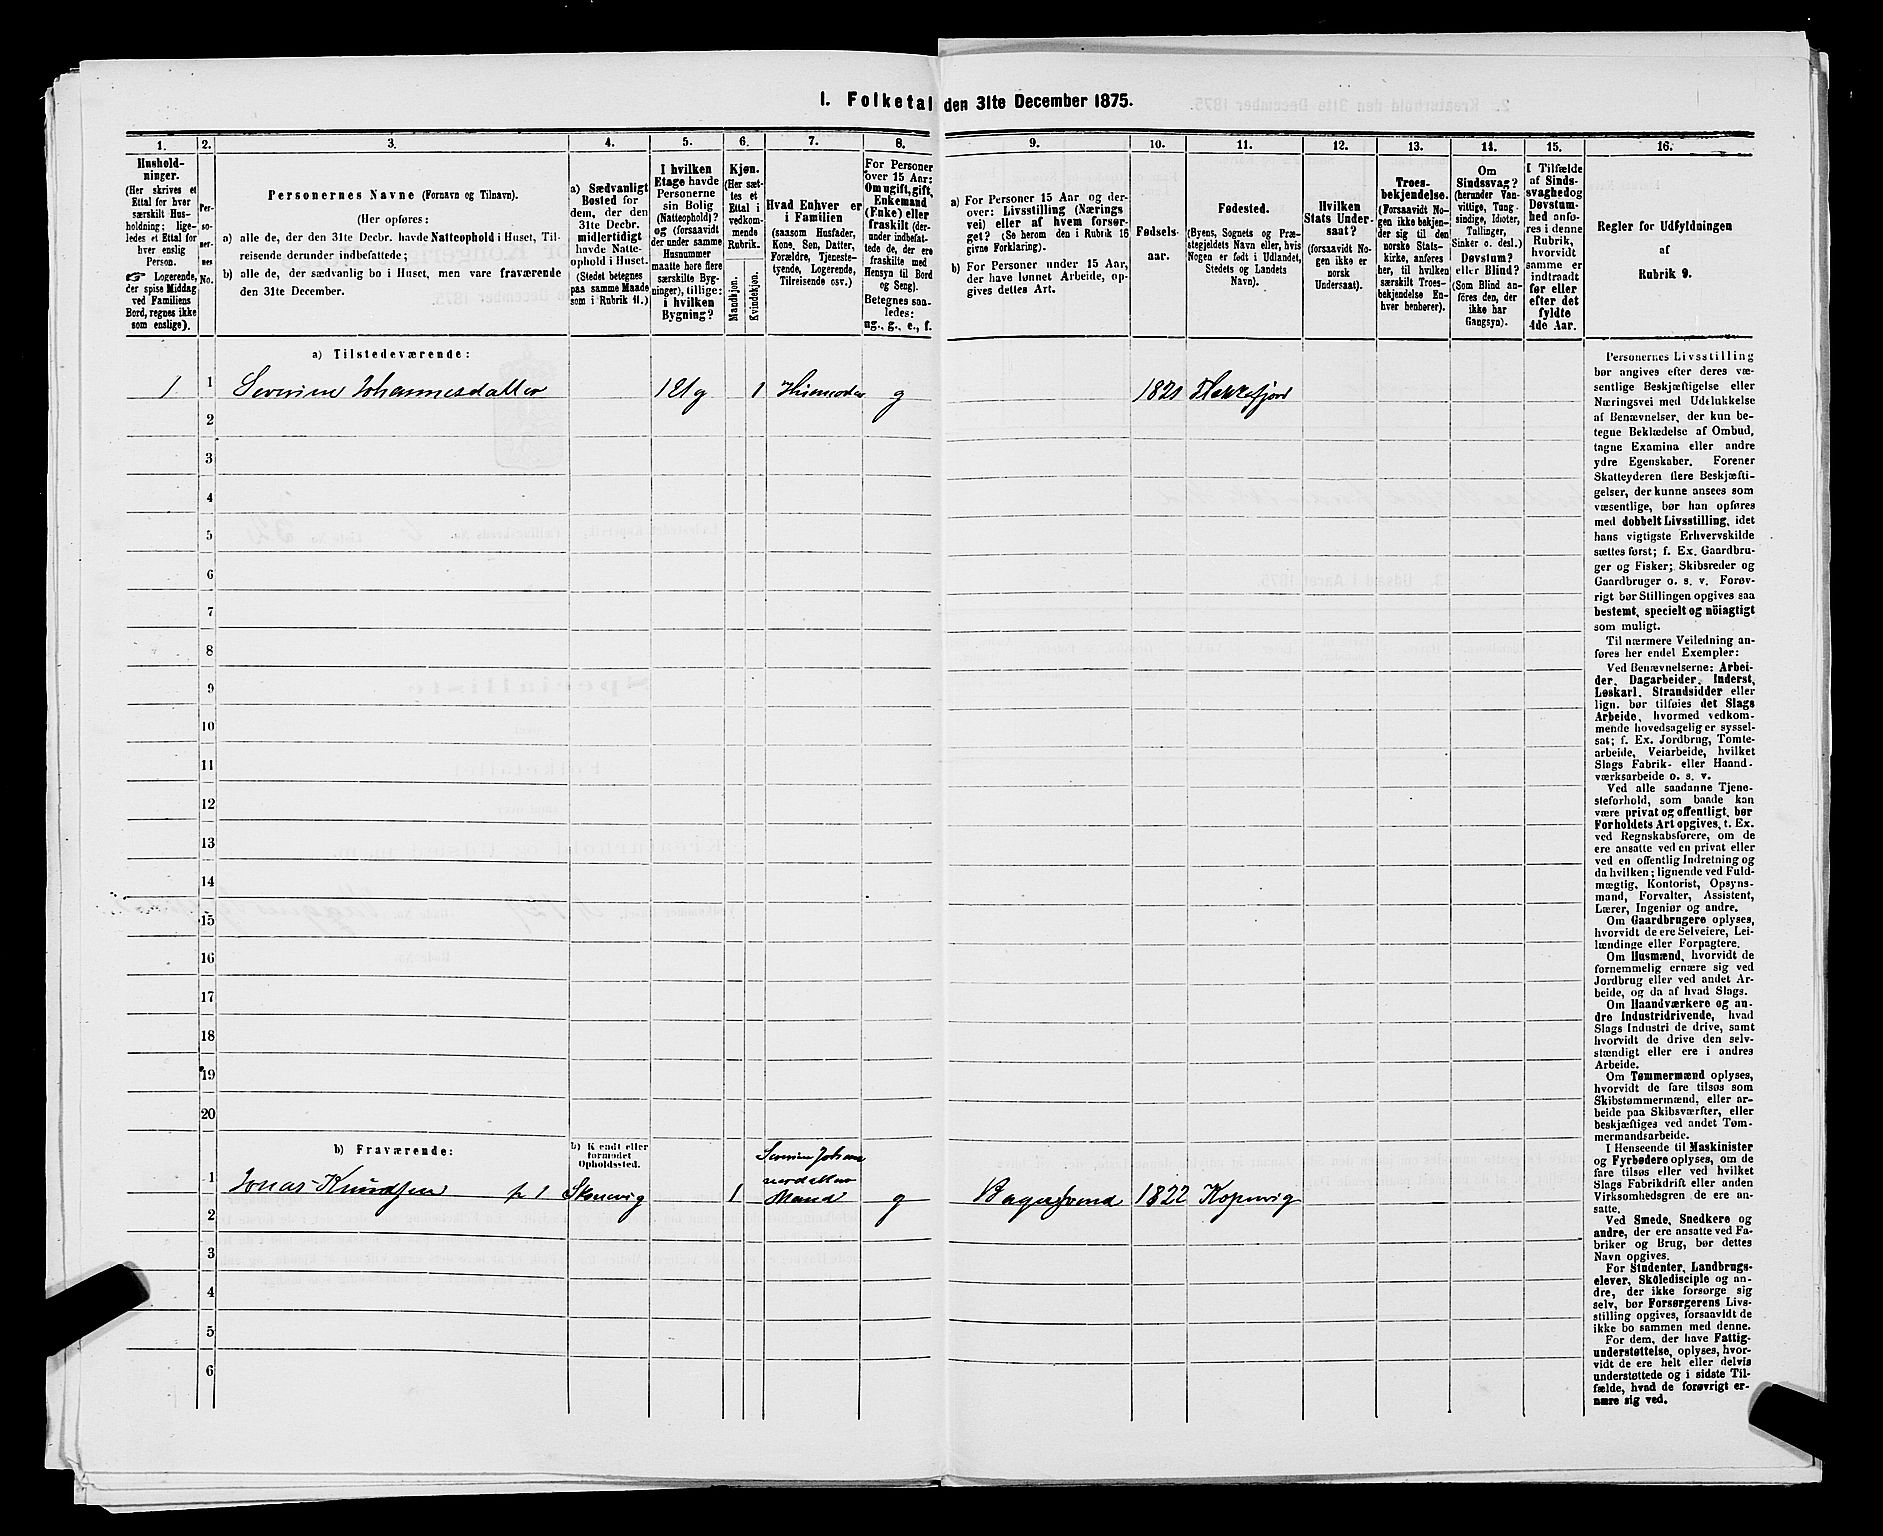 1. Folketal den 31te December 1875.
1. 2. 3. 4. 5. 6. 7. 8. 9. 10. 11. 12. 13. 14. 15. 16.
Hushold-
ninger.
(Her skrives et
Ettal for hver
særskilt Hus-
holdning; lige-
ledes et Ettal for
hver enslig
Person.
☞ Logerende,
der spise Middag
ved Familiens
Bord, regnes ikke
som enslige).
Per-
so-
ner-
nes
No.
Personernes Navne (Fornavn og Tilnavn).
(Her opføres:
a) alle de, der den 31te Decbr. havde Natteophold i Huset, Til-
reisende derunder indbefattede;
b) alle de, der sædvanlig bo i Huset, men vare fraværende
den 31te December.
a) Sædvanligt
Bosted for
dem, der den
31te Decbr.
midlertidigt
havde Natte-
ophold i Huset.
(Stedet betegnes
paa samme Maade
som i Rubrik 11.)
I hvilken
Etage havde
Personerne
sin Bolig
(Natteophold)?
og (forsaavidt
der under samme
Husnummer
maatte høre flere
særskilte Byg-
ninger), tillige:
i hvilken
Bygning?
Kjøn.
(Her sæt-
tes et
Ettal i
vedkom-
mende
Rubrik.
Mandkjøn.
Kvindekjøn.
Hvad Enhver er
i Familien
(saasom Husfader,
Kone, Søn, Datter,
Forældre, Tjeneste-
tyende, Logerende,
Tilreisende osv.)
For Personer
over 15 Aar:
Om ugift, gift,
Enkemand
(Enke) eller
fraskilt (der-
under indbefat-
tede de, der ere
fraskilte med
Hensyn til Bord
og Seng).
Betegnes saa-
ledes:
ug., g., e., f.
a) For Personer 15 Aar og der-
over: Livsstilling (Nærings
vei) eller af hvem forsør-
get? (Se herom den i Rubrik 16
givne Forklaring).
b) For Personer under 15 Aar,
der have lønnet Arbeide, op-
gives dettes Art.
Fødsels-
aar.
Fødested.
(Byens, Sognets og Præ-
stegjeldets Navn eller, hvis
Nogen er født i Udlandet,
Stedets og Landets
Navn).
Hvilken
Stats Under-
saat?
(forsaavidt No-
gen ikke er
norsk
Undersaat).
Troes-
bekjendelse.
(Forsaavidt No-
gen ikke bekjen-
der sig til den
norske Stats-
kirke, anføres
her, til hvilken
særskilt Troes-
bekjendelse En-
hver henhører).
Om
Sindssvag?
(herunder Van-
vittige, Tung-
sindige, Idioter,
Tullinger,
Sinker o. desl.)
Døvstum?
eller Blind?
(Som Blind an-
føres den, der
ikke har
Gangsyn).
I Tilfælde
af Sinds-
svaghed og
Døvstum-
hed anfø-
res i denne
Rubrik,
hvorvidt
samme er
indtraadt
før eller
efter det
fyldte
4de Aar.
Regler for Udfyldningen
af
Rubrik 9.
a) Tilstedeværende:
1 1 Severine Johannesdatter 1 Etg 1 Husmoder g 1821 Flekkefjord
2
3
4
5
6
7
8
9
10
11
12
13
14
15
16
17
18
19
20
b) Fraværende:
b) Kjendt eller
formodet
Opholdssted.
1 Jonas Knudsen 1 Skonevig 1 Severine Johan
nesdatter
Mand g Bagersvend 1822 Kopervig
2
3
4
5
6
Personernes Livsstilling
bør angives efter deres væ-
sentlige Beskjæftigelse eller
Næringsvei med Udelukkelse
af Benævnelser, der kun be-
tegne Beklædelse af Ombud,
tagne Examina eller andre
ydre Egenskaber. Forener
Skatteyderen flere Beskjæfti-
gelser, der kunne ansees som
væsentlige, bør han opføres
med dobbelt Livsstilling, idet
hans vigtigste Erhvervskilde
sættes først; f. Ex. Gaardbru-
ger og Fisker; Skibsreder og
Gaardbruger o. s. v. Forøv-
rigt bør Stillingen opgives saa
bestemt, specielt og nöiagtigt
som muligt.
Til nærmere Veiledning an-
føres her endel Exempler:
Ved Benævnelserne: Arbei-
der, Dagarbeider, Inderst,
Løskarl, Strandsidder eller
lign. bør tilføies det Slags
Arbeide, hvormed vedkom-
mende hovedsagelig er syssel-
sat; f. Ex. Jordbrug, Tomte-
arbeide, Veiarbeide, hvilket
Slags Fabrik- eller Haand-
værksarbeide o. s. v.
Ved alle saadanne Tjene-
steforhold, som baade kan
være privat og offentligt, bør
Forholdets Art opgives, t. Ex.
ved Regnskabsførere, om de
ere ansatte ved en privat eller
ved en offentlig Indretning og
da hvilken; lignende ved Fuld-
mægtig, Kontorist, Opsyns-
mand, Forvalter, Assistent,
Lærer, Ingeniør og andre.
Om Gaardbrugere oplyses,
hvorvidt de ere Selveiere, Lei-
lændinge eller Forpagtere.
Om Husmænd, hvorvidt de
fornemmelig ernære sig ved
Jordbrug eller ved andet Ar-
beide, og da af hvad Slags.
Om Haandværkere og an-
dre Industridrivende, hvad
Slags Industri de drive, samt
hvorvidt de drive den selv-
stændigt eller ere i andres
Arbeide.
Om Tømmermænd oplyses,
hvorvidt de fare tilsøs som
Skibstømmermænd, eller ar-
beide paa Skibsværfter, eller
beskjæftiges ved andet Tøm-
mermandsarbeide.
I Henseende til Maskinister
og Fyrbødere oplyses, om de
fare tilsøs eller ved hvilket
Slags Fabrikdrift eller anden
Virksomhedsgren de ere an-
satte.
Ved Smede, Snedkere og
andre, der ere ansatte ved Fa-
briker og Brug, bør dettes
Navn opgives.
For Studenter, Landbrugs-
elever, Skoledisciple og an-
dre, der ikke forsørge sig
selv, bør Forsørgerens Livs-
stilling opgives, forsaavidt de
ikke bo sammen med denne.
For dem, der have Fattig-
understøttelse, oplyses, hvor-
vidt de ere helt eller delvis
understøttede og i sidste Til-
fælde, hvad de forøvrigt er-
nære sig ved.